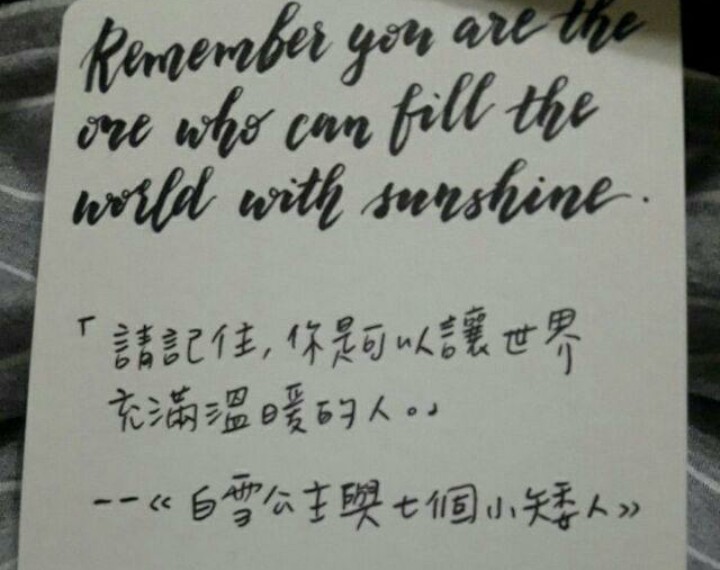 Remember you are the
one who can fill the
world with sunshine.
「請記住,你是可以讓世界
充滿溫暖的人。」
--《白雪公主與七個小矮人》